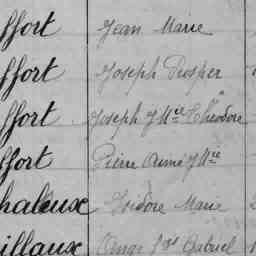 ffort Jean Marie
ffort Joseph Prosper
ffort Joseph J Mie Théodore
ffort Pierre Aimé J Mie
haleux Isidore Marie
illaux Ange Gabriel